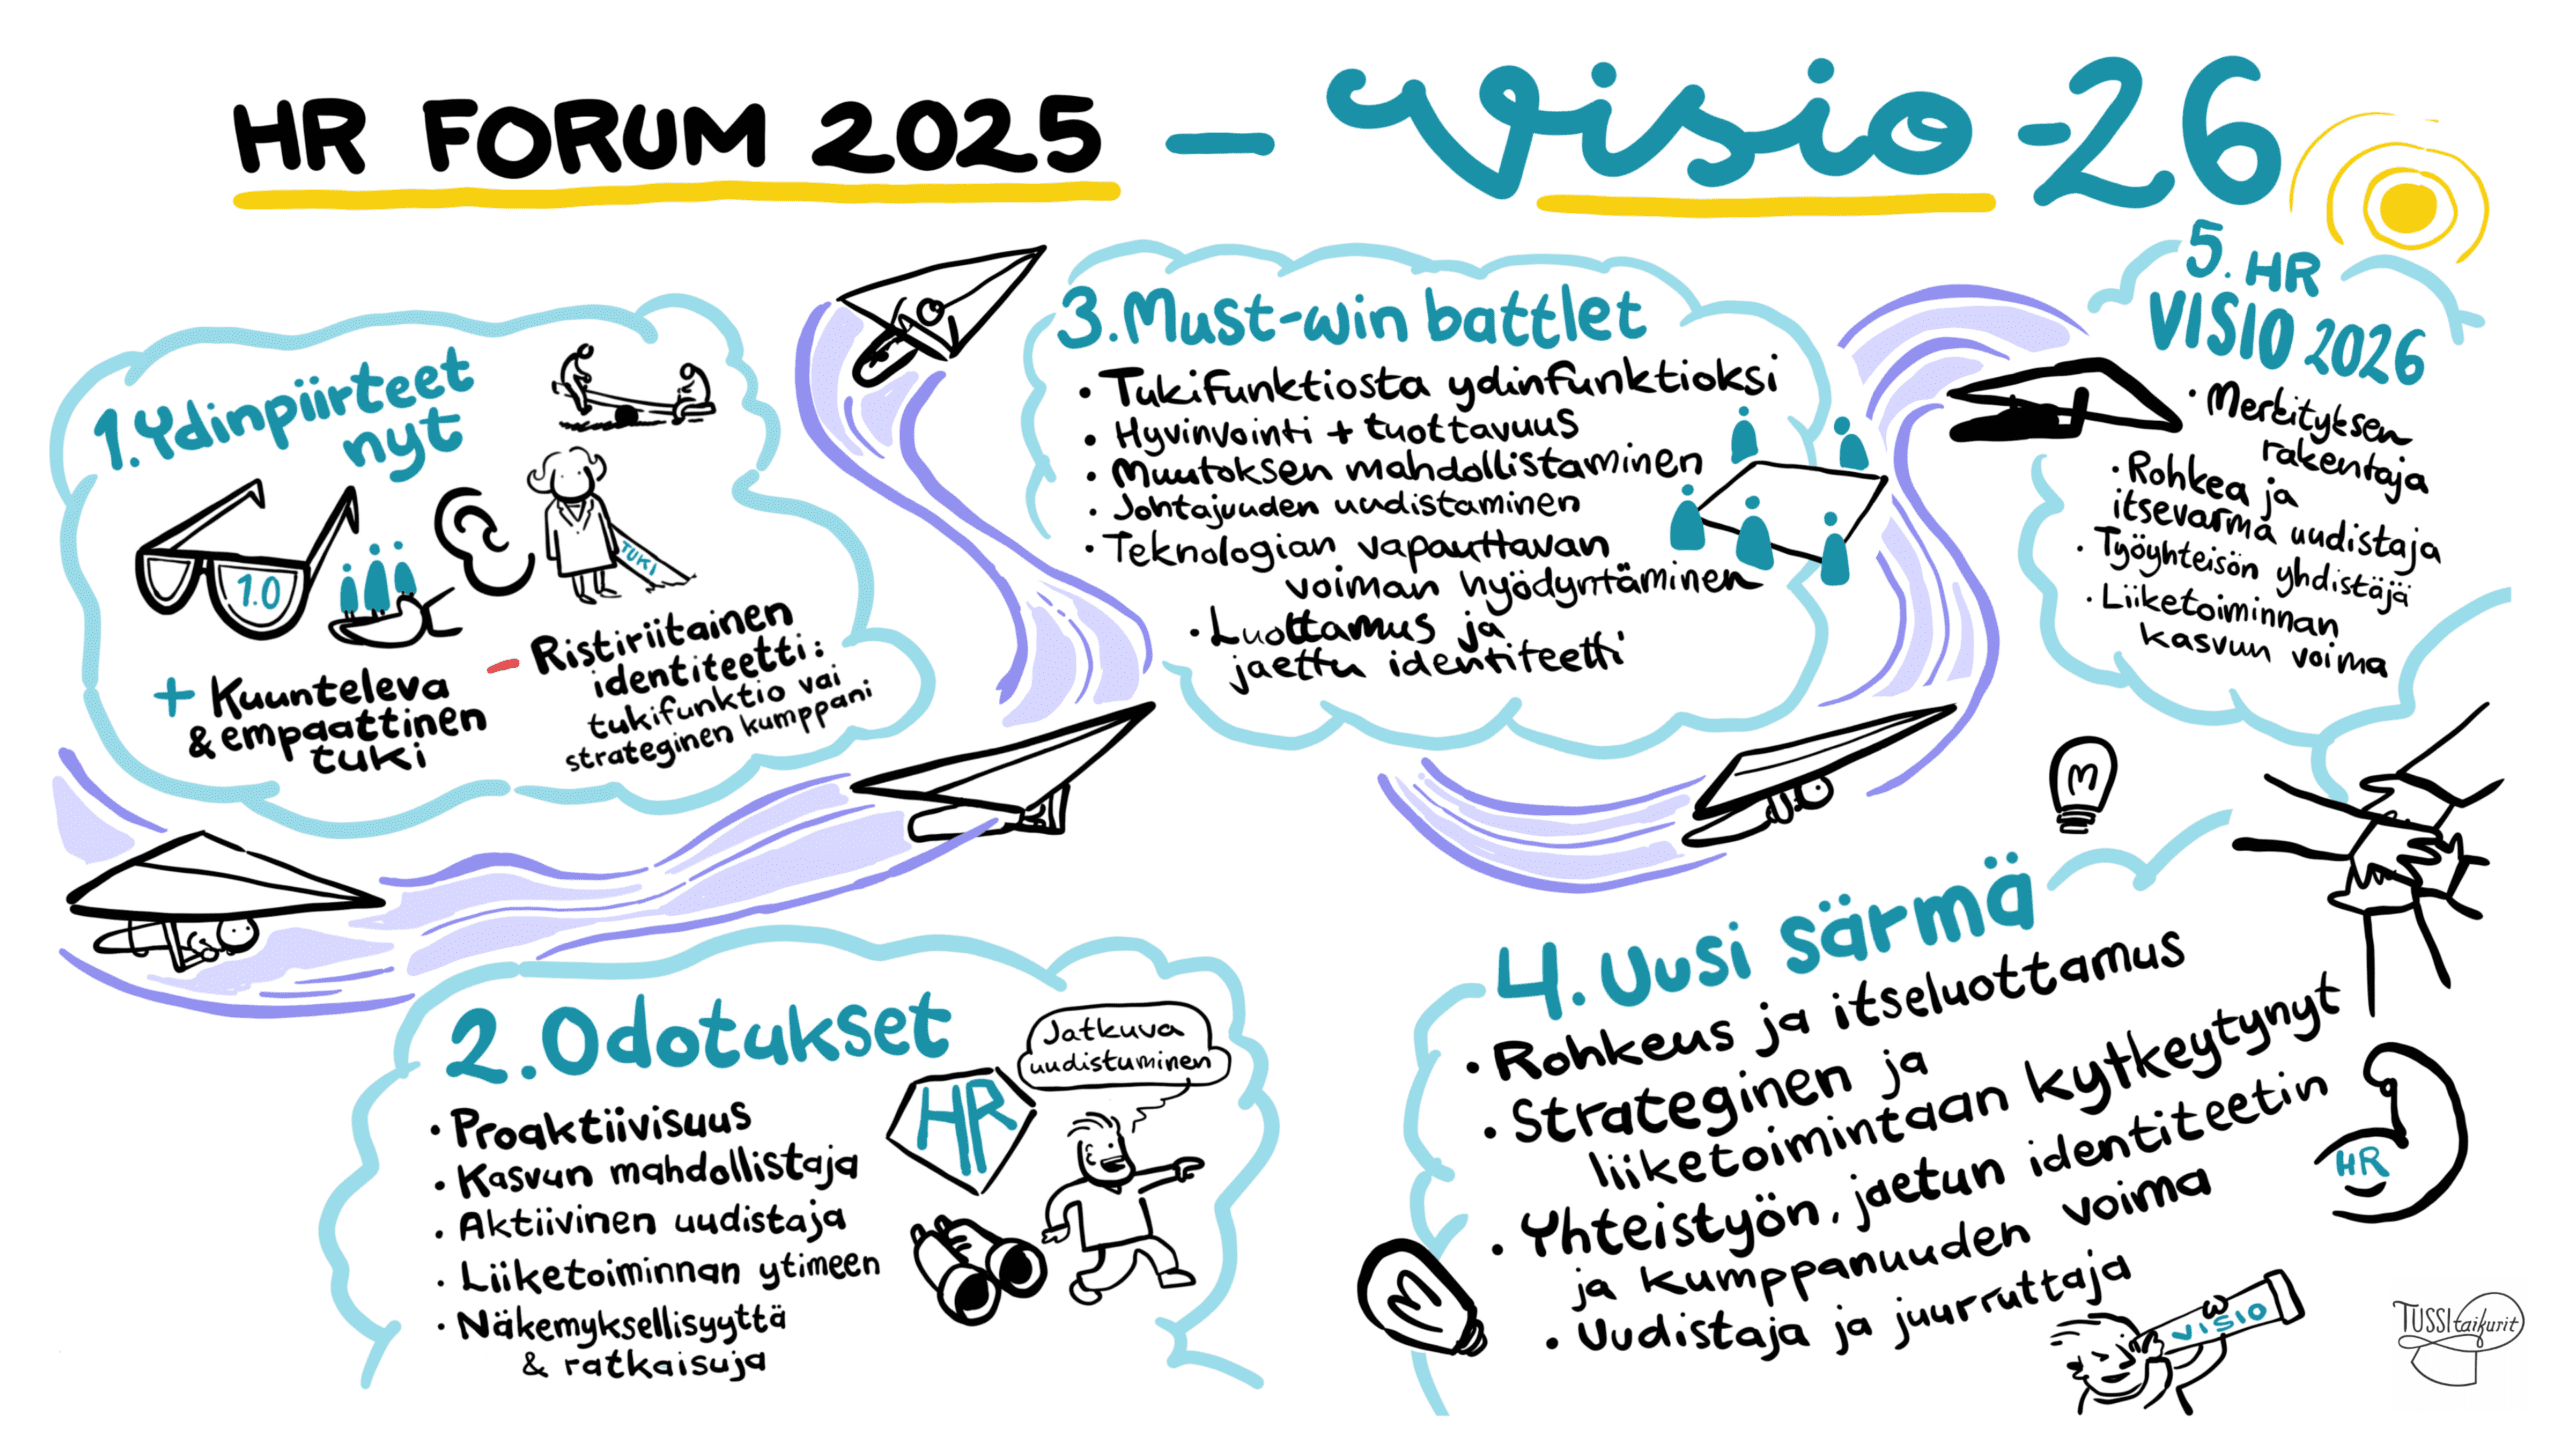 HR FORUM 2025 – Visio -26
1. Ydinpiirteet
nyt
1.0
TUKI
+ Kuunteleva
& empaattinen
tuki
- Ristiriitainen
identiteetti:
tukifunktio vai
strateginen kumppani
2. Odotukset
• Proaktiivisuus
• Kasvun mahdollistaja
• Aktiivinen uudistaja
• Liiketoiminnan ytimeen
• Näkemyksellisyyttä
& ratkaisuja
HR
Jatkuva
uudistuminen
3. Must-win battlet
• Tukifunktiosta ydinfunktioksi
• Hyvinvointi + tuottavuus
• Muutoksen mahdollistaminen
• Johtajuuden uudistaminen
• Teknologian vapauttavan
voiman hyödyntäminen
• Luottamus ja
jaettu identiteetti
4. Uusi särmä
• Rohkeus ja itseluottamus
• Strateginen ja
liiketoimintaan kytkeytynyt
• Yhteistyön, jaetun identiteetin
ja kumppanuuden voima
• Uudistaja ja juurruttaja
HR
VISIO
5. HR
VISIO 2026
• Merkityksen
rakentaja
• Rohkea ja
itsevarma uudistaja
• Työyhteisön yhdistäjä
• Liiketoiminnan
kasvun voima
TUSSItaikurit